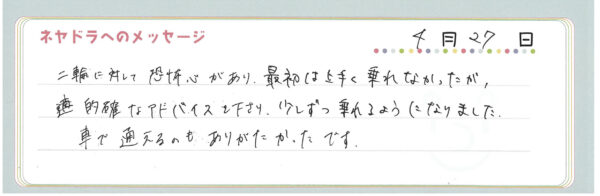 ネヤドラへのメッセージ
4月27日
二輪に対して恐怖心があり、最初は上手く乗れなかったが、
適 的確なアドバイスを下さり、少しずつ乗れるようになりました.
車で通えるのもありがたかったです.